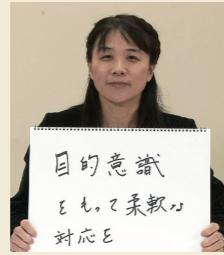 目的意識
をもって柔軟な
対応を